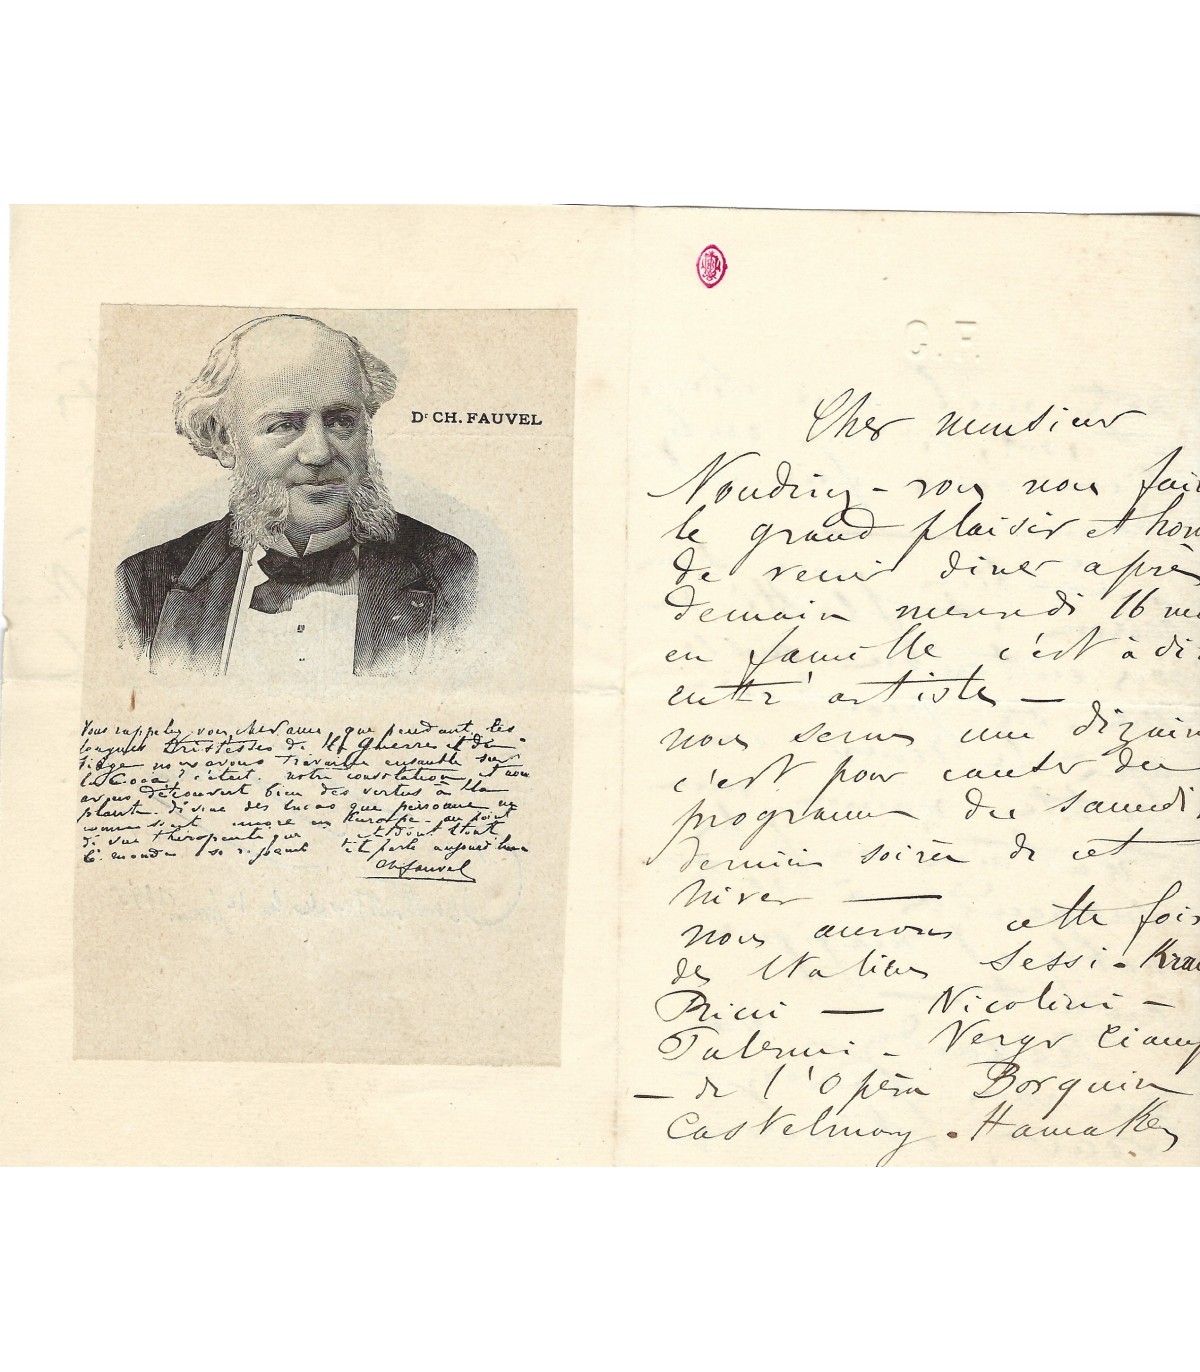 Dr CH. FAUVEL
Vous rappelez vous, cher ami, que pendant les
longues tristesses de la Guerre et du
siège nous avons travaillé ensemble sur
la Coca? c'était notre consolation et nous
avons découvert bien des vertus à la
plante divine des Incas que personne ne
connaissait encore en Europe - au point
de vue thérapeutique et dont tout
le monde parle aujourd'hui
Ch Fauvel
G. F.
Cher monsieur
Voudriez-vous nous fair
le grand plaisir et hon
de venir diner après
demain mercredi 16
en famille c'est à di
entr' artistes —
nous serons une dizain
c'est pour causer du
programme du samedi
dernière soirée de cet
hiver —
nous aurons cette fois
des Italiens Sessi - Krau
Ricci — Nicolini —
Palermi - Verger Ciamp
— de l'Opéra Bosquin
Castelmary - Hamaken